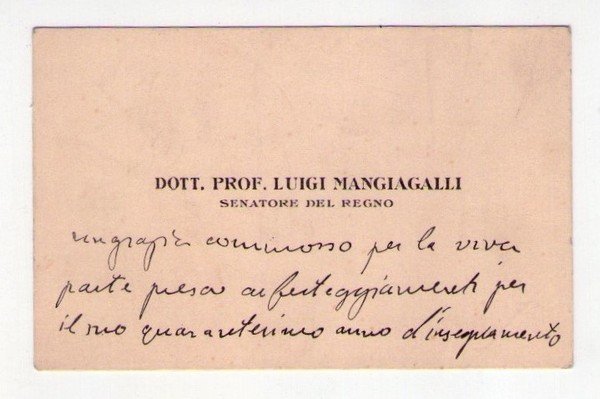 DOTT. PROF. LUIGI MANGIAGALLI
SENATORE DEL REGNO
ringrazia commosso per la viva
parte presa ai festeggiamenti per
il suo quarantesimo anno d'insegnamento